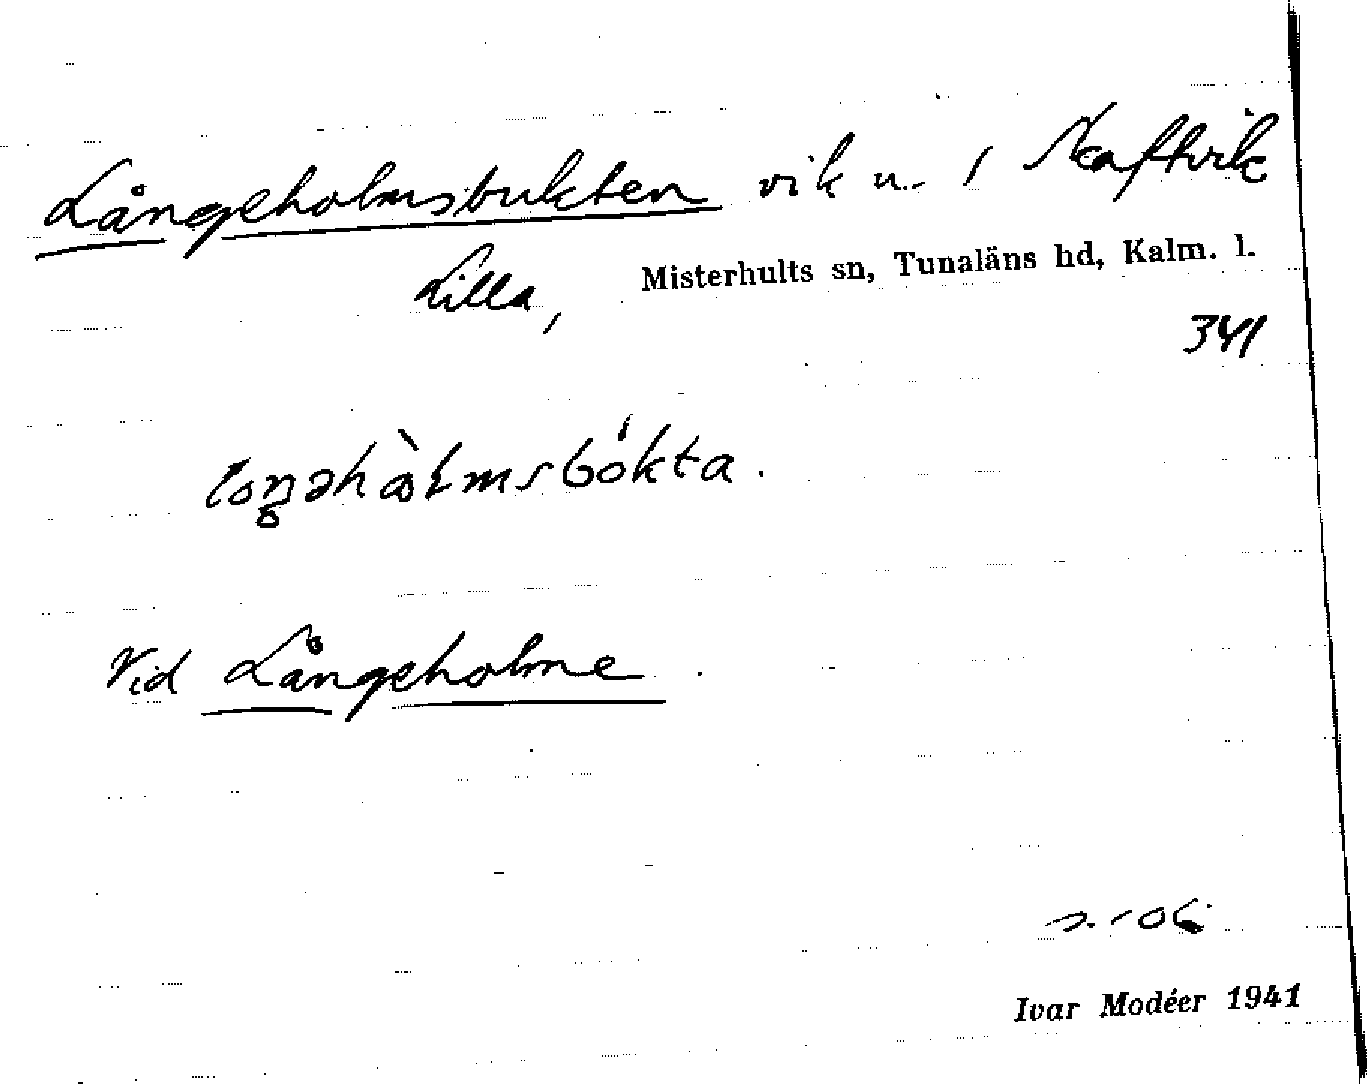 Långeholmsbukten vik u. / Kaftvik
Lilla, Misterhults sn, Tunaläns hd, Kalm. l.
341
Vid Långeholme.
s. 106
Ivar Modéer 1941